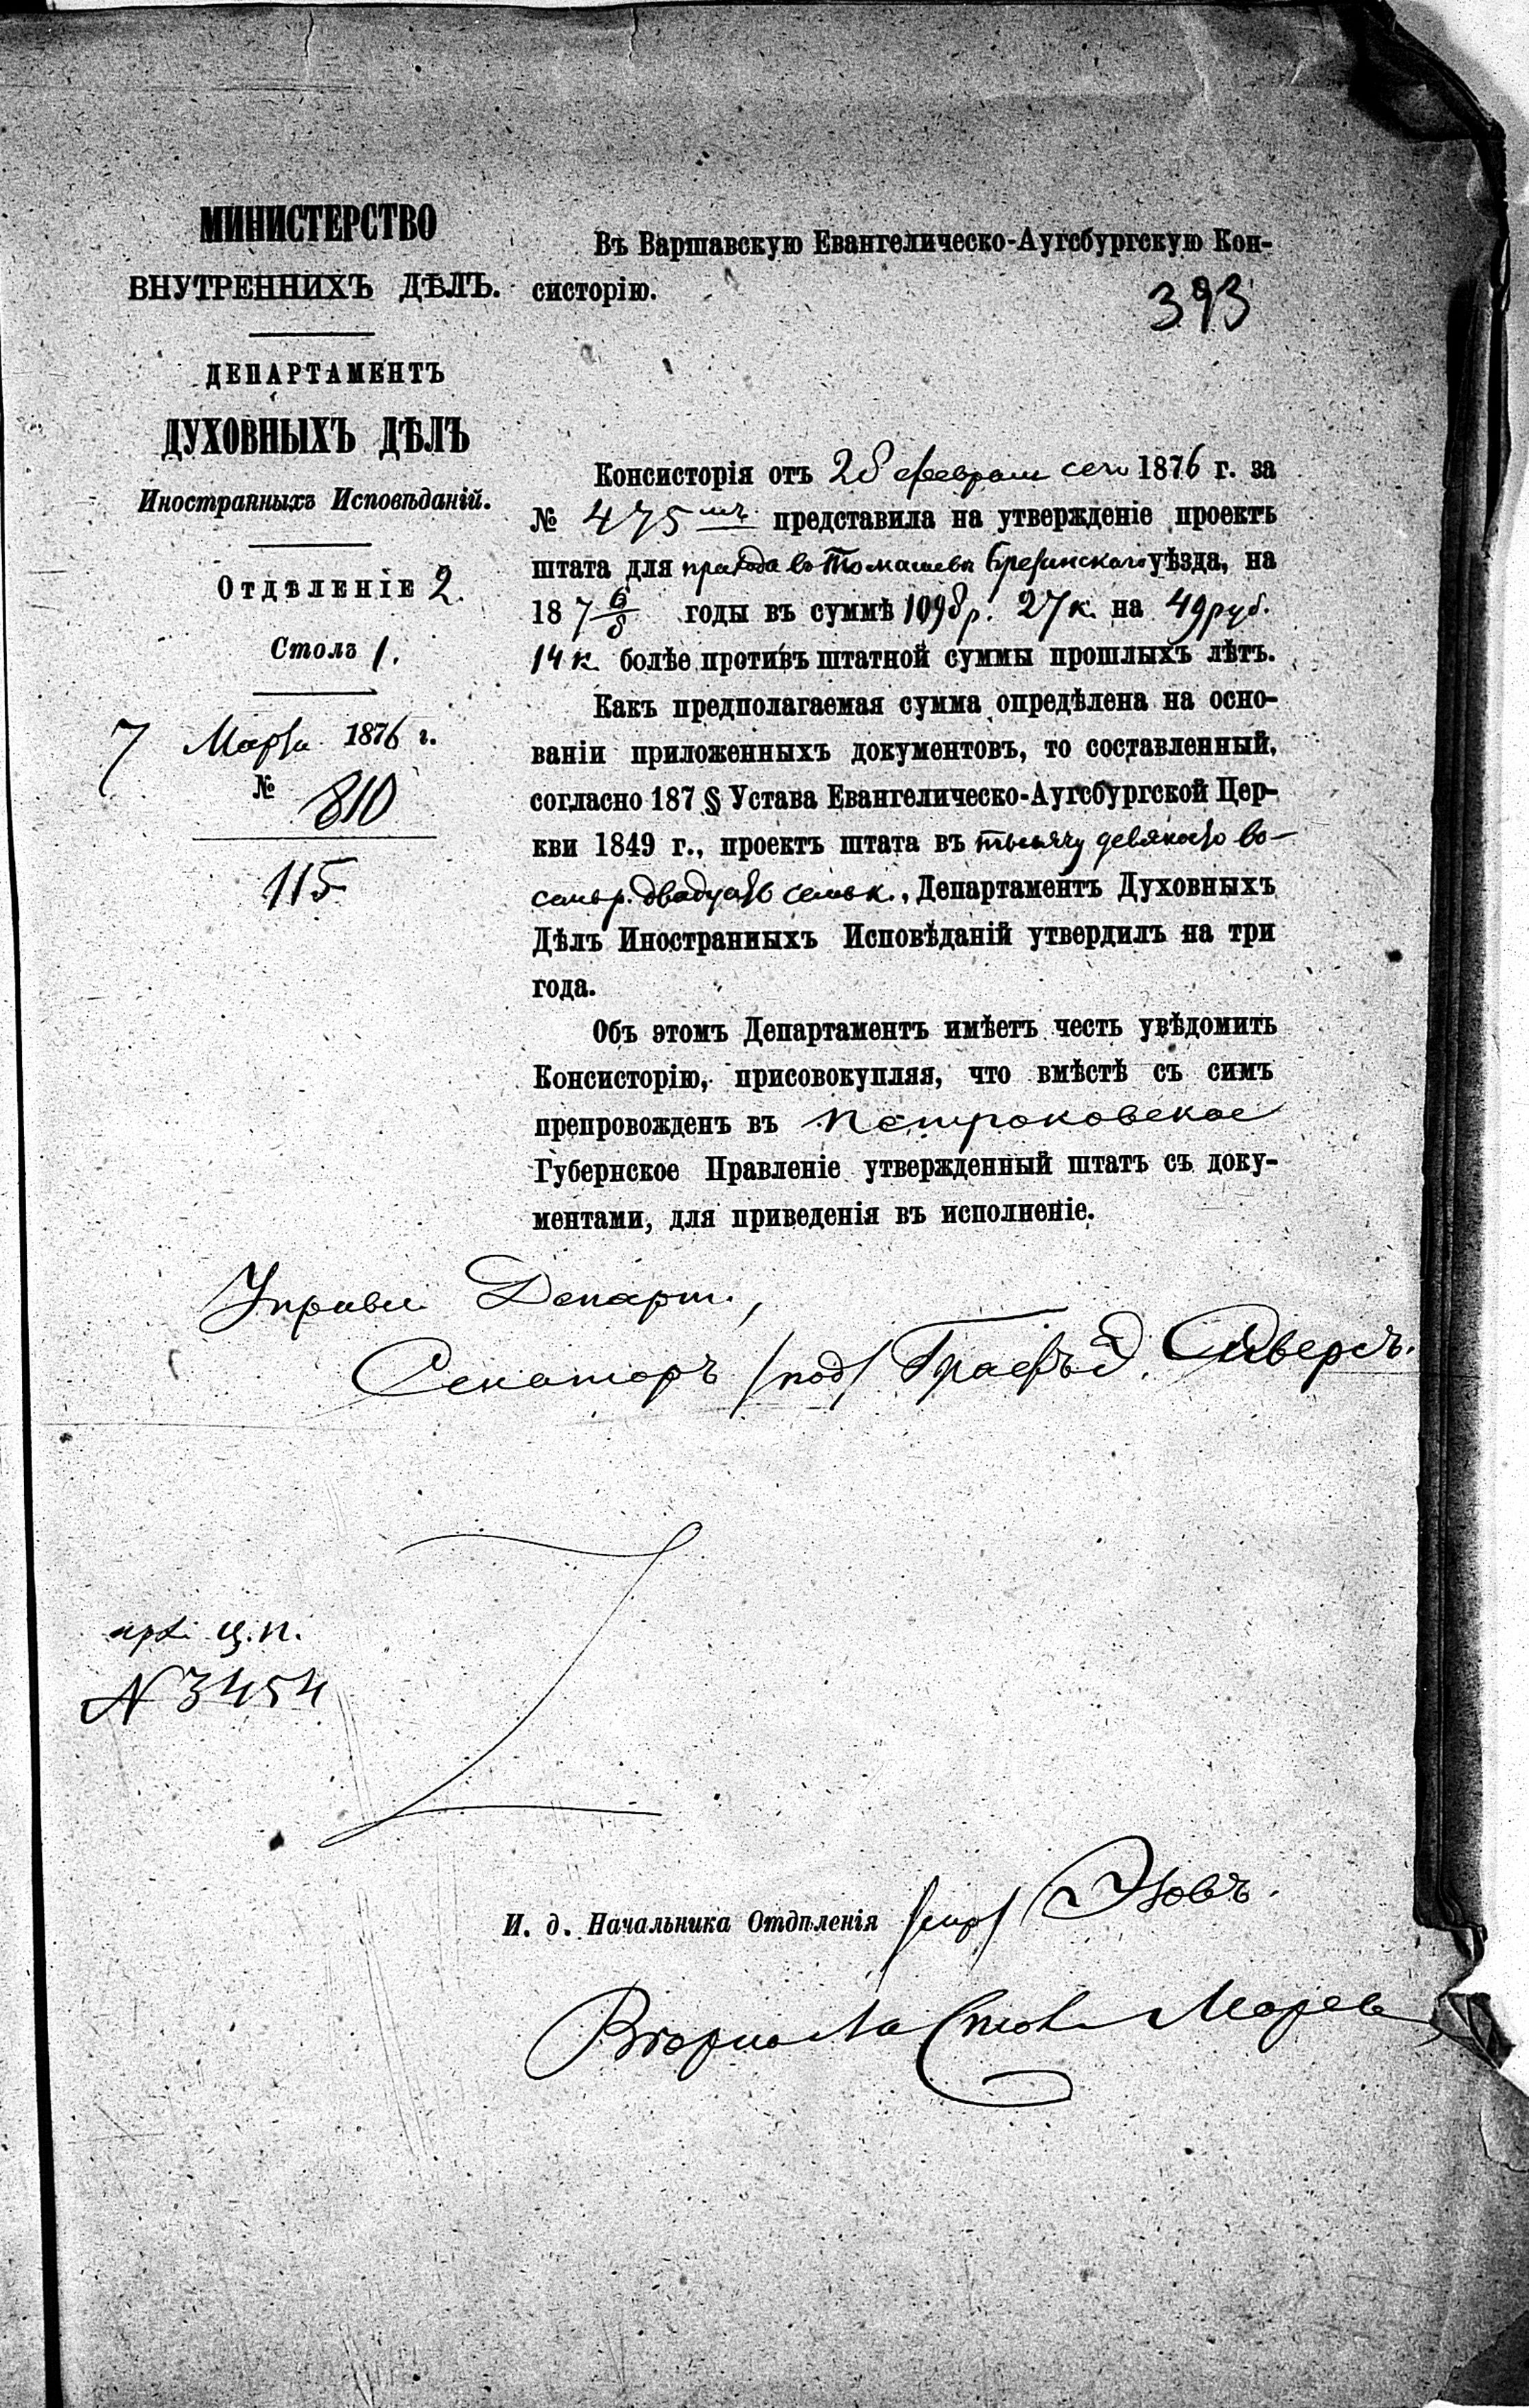 МИНИСТЕРСТВО
ВНУТРЕННИХЪ ДѢЛЪ.
ДЕПАРТАМЕНТЪ
ДУХОВНЫХЪ ДѢЛЪ
Иностранныхъ Исповѣданій.
Отдѣленіе 2.
Столъ 1.
7 Марта 1876 г.
№ 810
115
Въ Варшавскую Евангелическо-Аугсбургскую Кон-
систорію.
393
Консисторія отъ 28 февраля сего 1876 г. за
№ 475 представила на утвержденіе проектъ
штата для прихода въ Томашевѣ Брезинскаго уѣзда, на
187 6/8 годы въ суммѣ 1098 р. 27 к. на 49 руб.
14 к. болѣе противъ штатной суммы прошлыхъ лѣтъ.
Какъ предполагаемая сумма опредѣлена на осно-
ваніи приложенныхъ документовъ, то составленный,
согласно 187 § Устава Евангелическо-Аугсбургской Цер-
кви 1849 г., проектъ штата въ тысячу девяносто во-
семь р. двадцать семь к., Департаментъ Духовныхъ
Дѣлъ Иностранныхъ Исповѣданій утвердилъ на три
года.
Объ этомъ Департаментъ имѣетъ честь увѣдомить
Консисторію, присовокупляя, что вмѣстѣ съ симъ
препровожденъ въ Петроковское
Губернское Правленіе утвержденный штатъ съ доку-
ментами, для приведенія въ исполненіе.
Управл. Департ.,
Сенаторъ /под/ Графъ Э. Сиверсъ.
ц.п.
N 3454
И. д. Начальника Отдѣленія /скр/ Эзовъ.